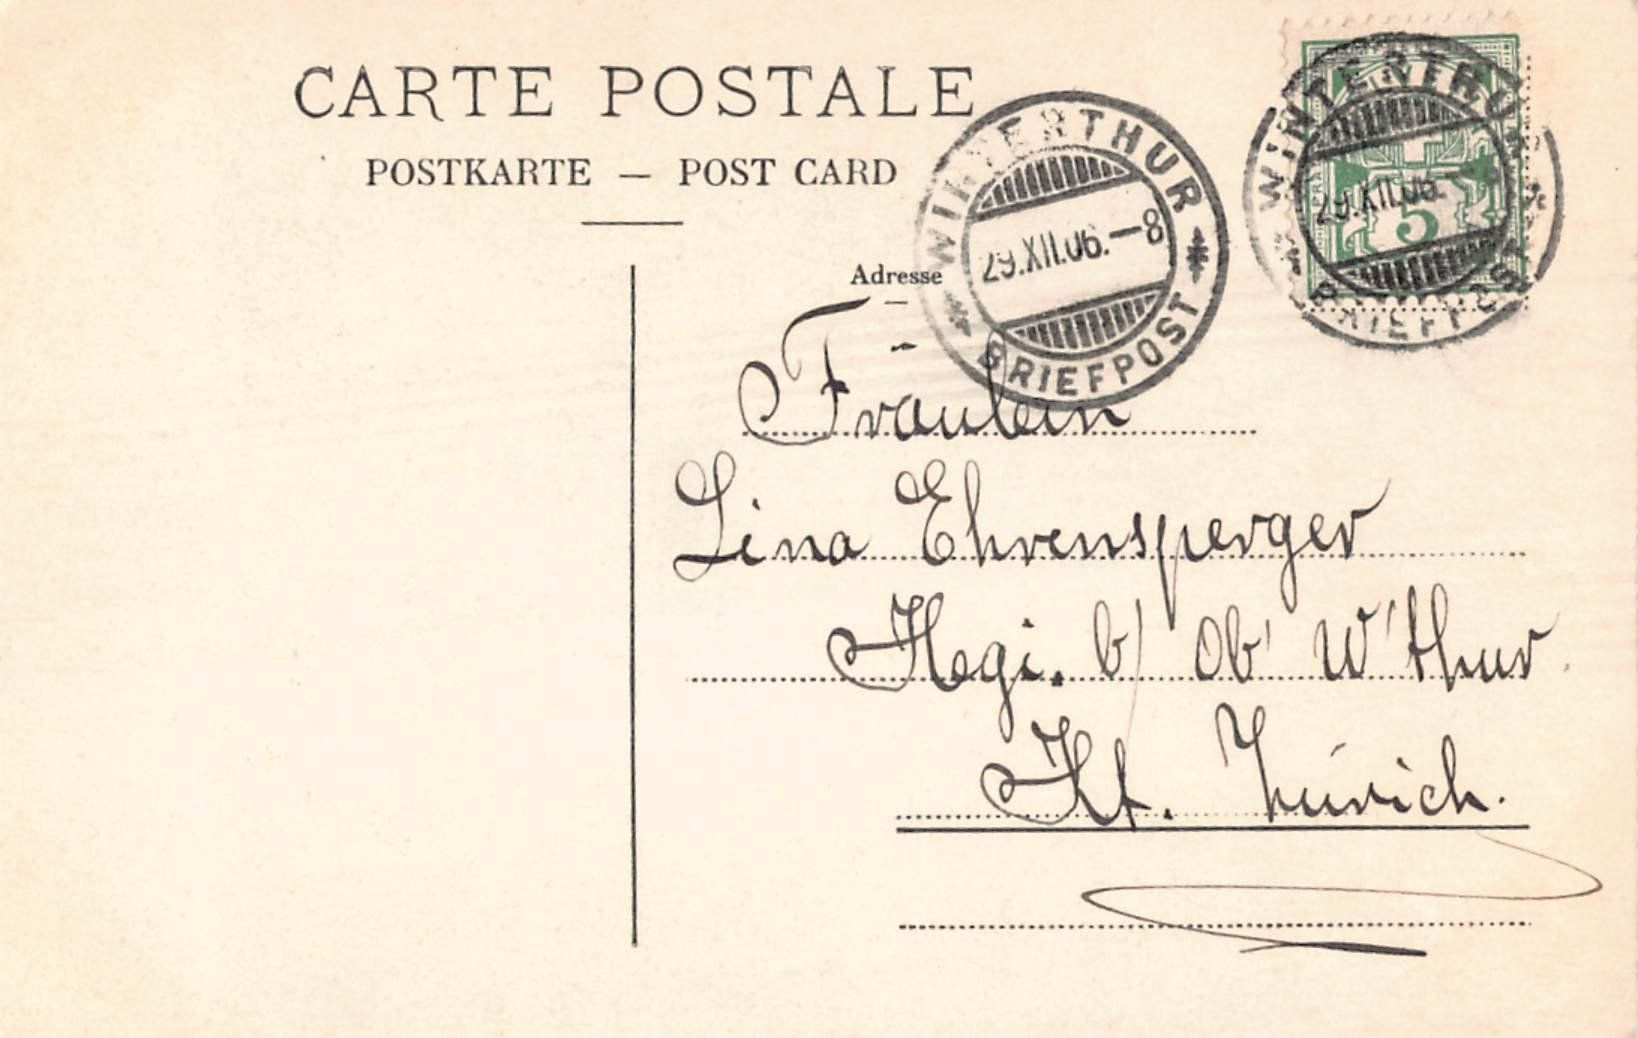 CARTE POSTALE
POSTKARTE — POST CARD
WINTERTHUR
29.XII.06.—8
BRIEFPOST
WINTERTHUR
29.XII.06.
BRIEFPOST
5
Adresse
Fräulein
Lina Ehrensperger
Hegi. b/ Ob' W'thur
Kt. Zürich.